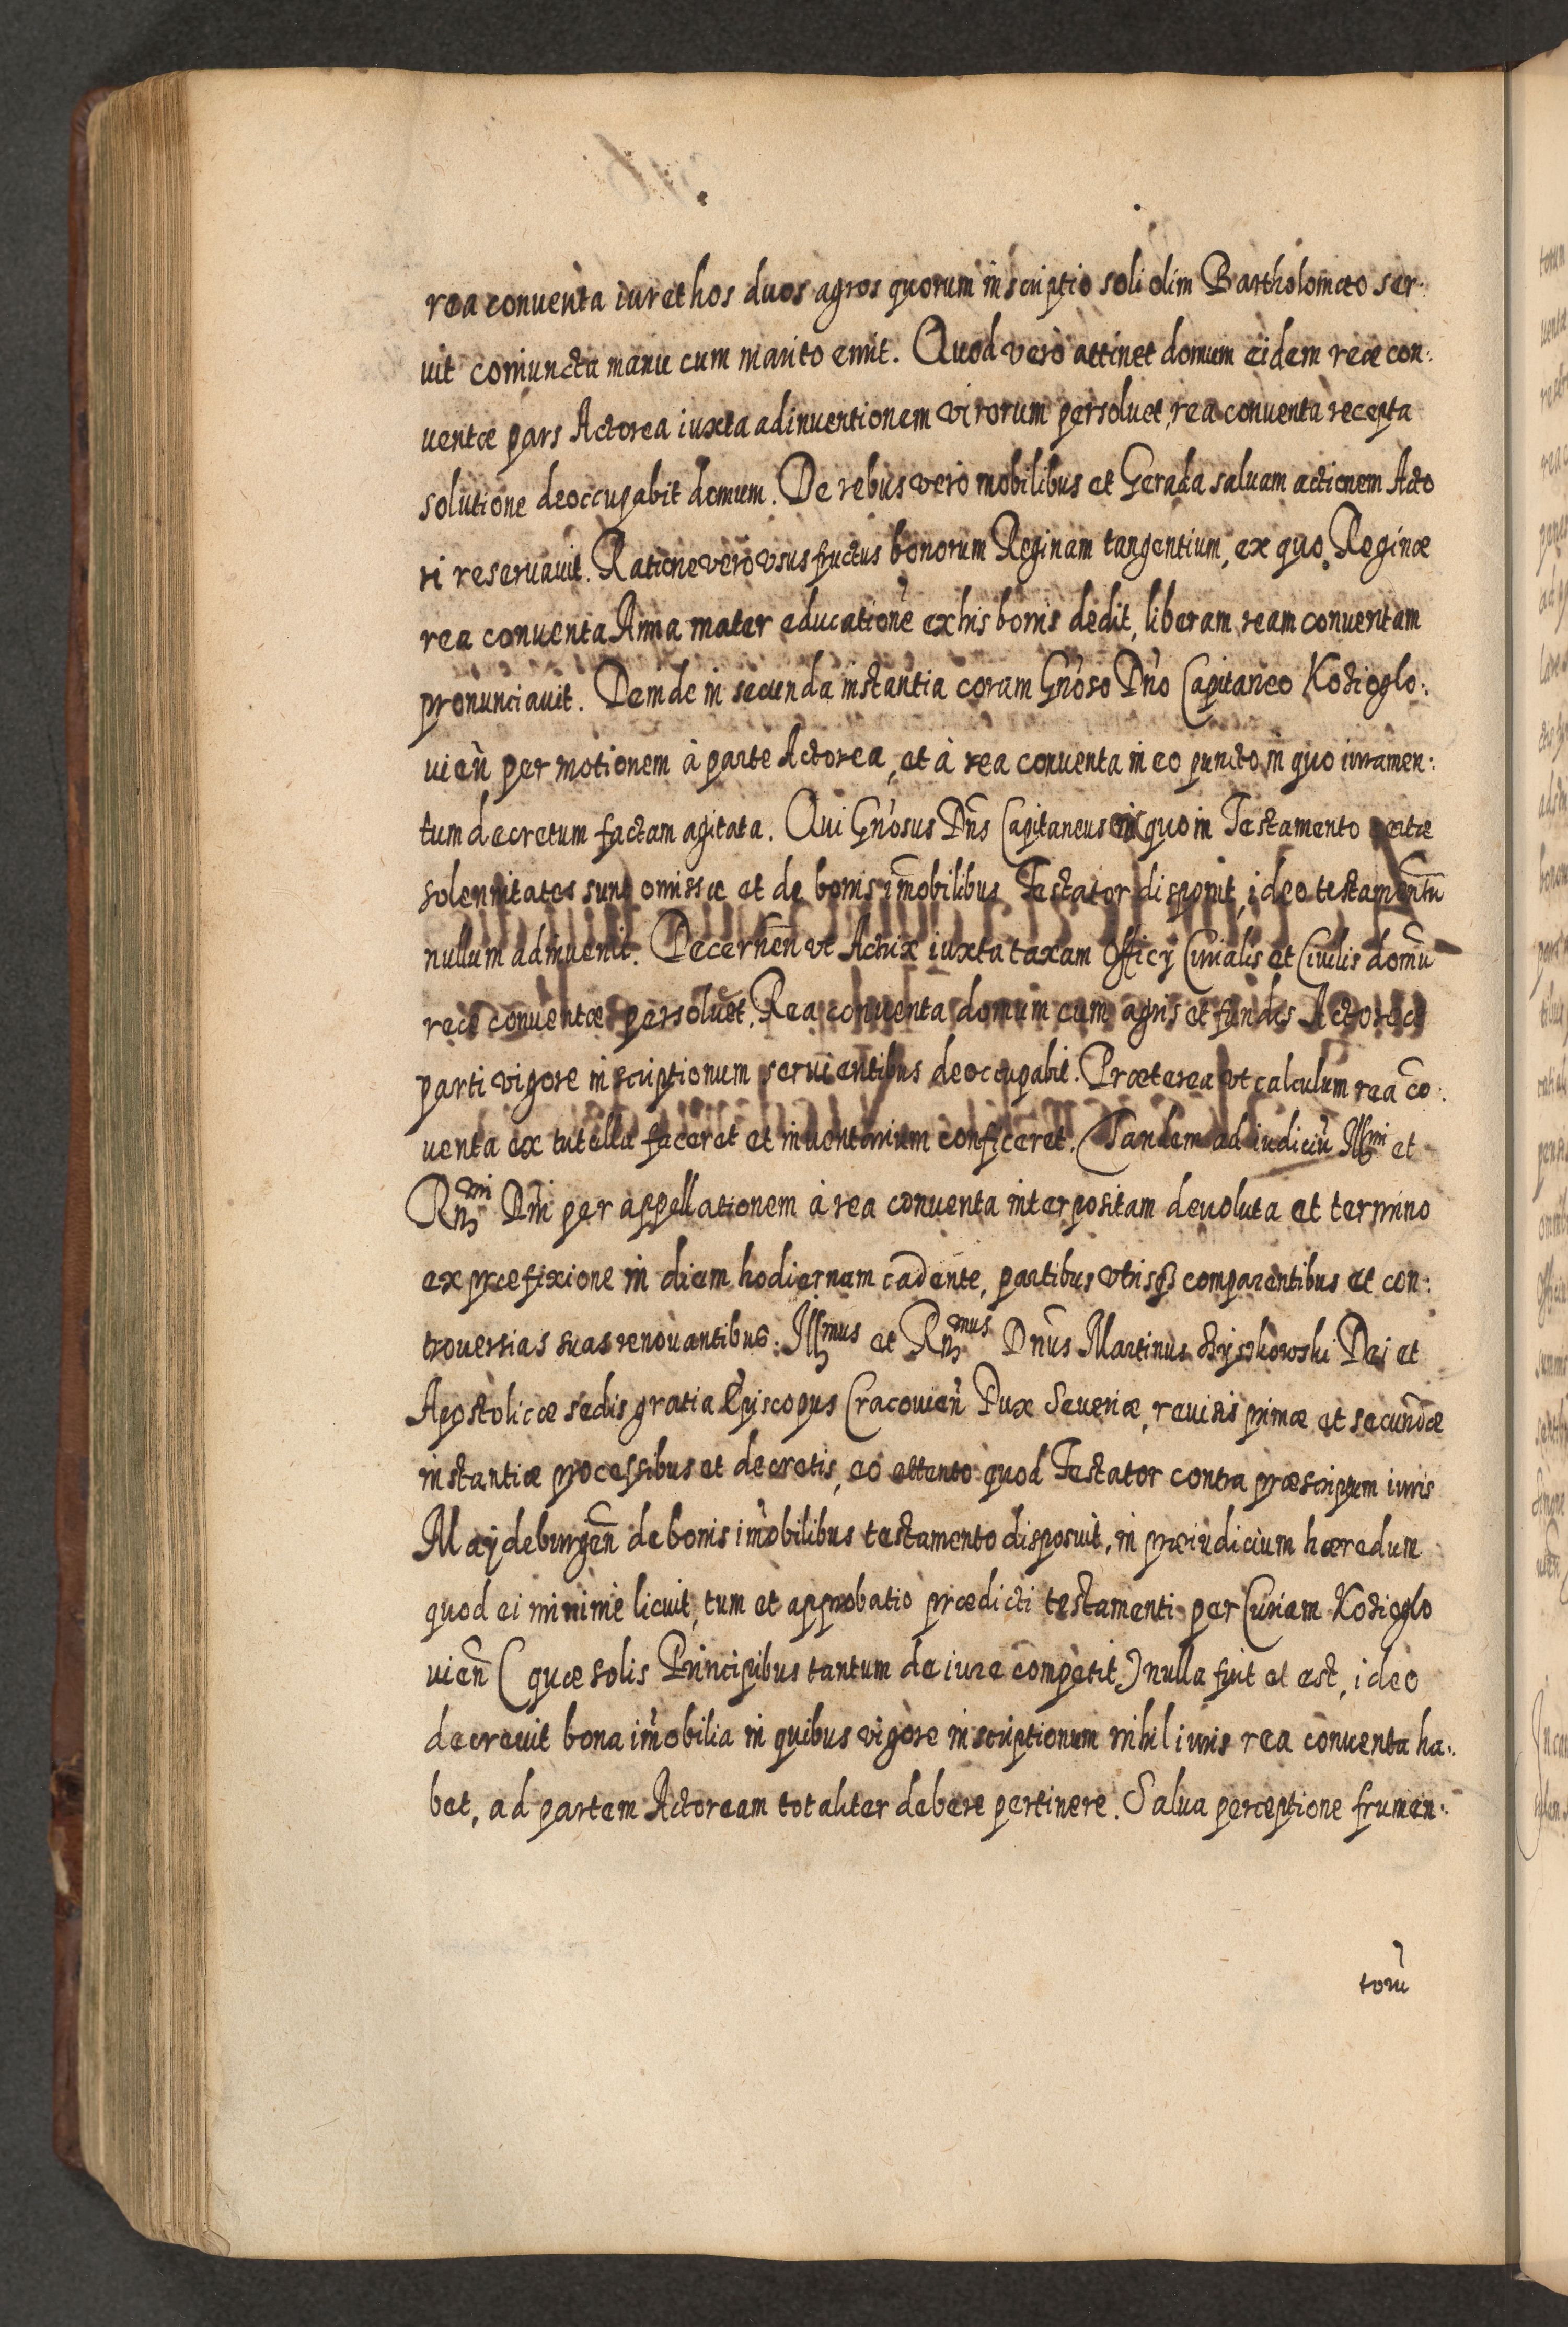 rea conuenta iuret hos duos agros quorum inscriptio soli olim Bartholomæo ser:
uit coniuncta manu cum marito emit. Quod verò attinet domum eidem reæ con:
uentæ pars Actorea iuxta adinuentionem virorum persoluet, rea conuenta recepta
solutione deoccupabit domum. De rebus verò mobilibus et Gerada saluam actionem Acto
ri reseruauit. Ratione verò vsusfructus bonorum Reginam tangentium, ex quo Reginæ
rea conuenta Anna mater educatione ex his bonis dedit, liberam ream conuentam
pronunciauit. Deinde in secunda instantia coram Gñoso Dño Capitaneo Koziglo:
uieñ per motionem à parte Actorea, et à rea conuenta in eo puncto in quo iuramen:
tum decretum factam agitata. Qui Gñosus Dñs Capitaneus ex quo in Testamento
solennitates sunt omissæ et de bonis im̃obilibus Testator disponit, ideo testamentũ
nullum adinuenit. Decerneñ vt Actrix iuxta taxam Officÿ Curialis et Ciuilis domũ
reæ conuentæ persoluet. Rea conuenta domum cum agris et fundis Actoreæ
parti vigore inscriptionum seruientibus deoccupabit. Præterea vt calculum rea cõ:
uenta ex tutella faceret et inuentarium conficeret. Tandem ad iudiciũ Illmi et
Rmi Dñi per appellationem à rea conuenta interpositam deuoluta et termino
ex præfixione in diem hodiernam cadente, partibus vtrisqꝫ comparentibus et con:
trouersias suas renouantibus: Illmus et Rmus Dnũs Martinus Szyszkowski Dei et
Apostolicæ sedis gratia Episcopus Cracouieñ Dux Seueriæ, reuisis primæ et secundæ
instantiæ processibus et decretis, eò attento quod Testator contra præscriptum iuris
Maÿdeburgeñ de bonis im̃obilibus testamento disposuit, in præiudicium hæredum
quod ei minimè licuit, tum et approbatio prædicti testamenti per Curiam Koziglo
uieñ (quæ solis Principibus tantum de iure competit) nulla fuit et est, ideo
decreuit bona im̃obilia in quibus vigore inscriptionum nihil iuris rea conuenta ha:
bet, ad partem Actoream totaliter debere pertinere. Salua perceptione frumen:
torũ